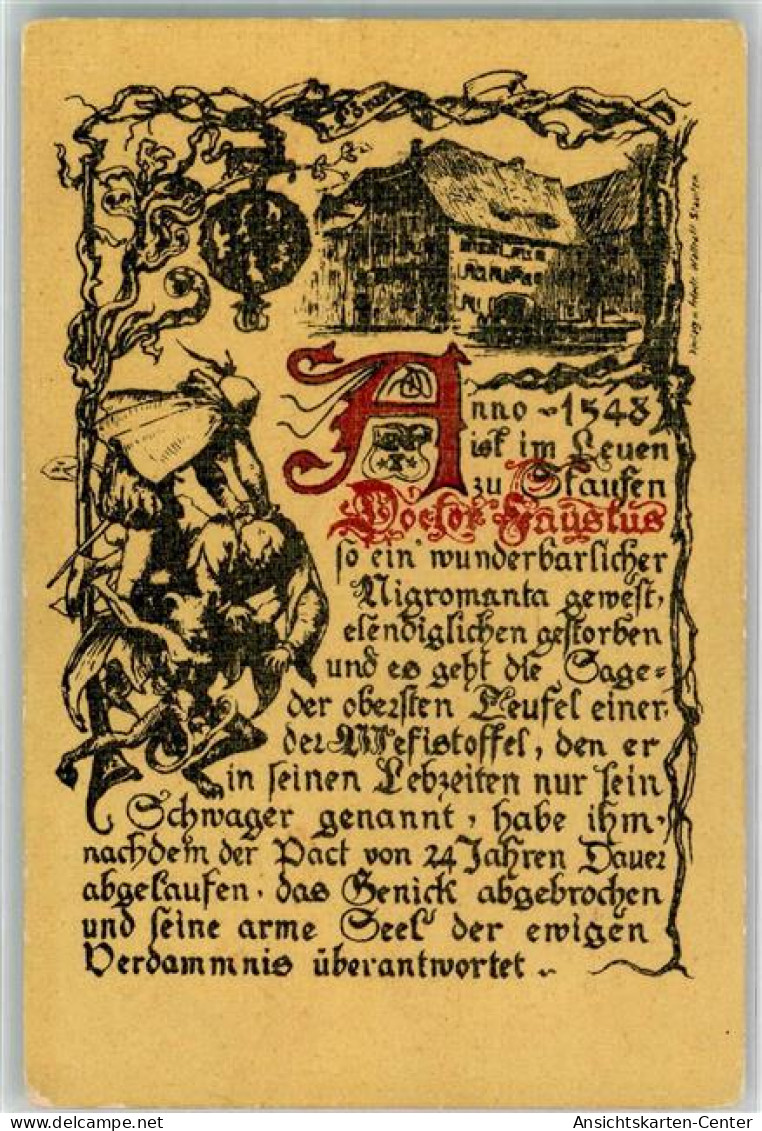 Anno 1548
ist im Leuen
zu Staufen
Doctor Faustus
so ein wunderbarlicher
Nigromanta gewest,
elendiglichen gestorben
und es geht die Sage=
der obersten Teufel einer.
der Mefistoffel, den er
in seinen Lebzeiten nur sein
Schwager genannt, habe ihm,
nachdem der Pact von 24 Jahren Dauer
abgelaufen, das Genick abgebrochen
und seine arme Seel der ewigen
Verdammnis überantwortet
Ansichtskarten-Center